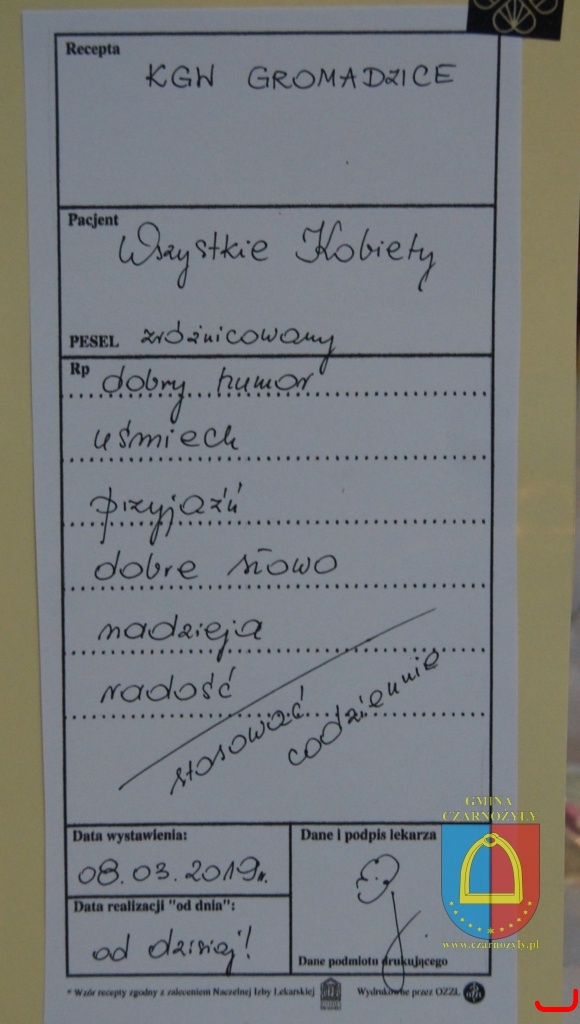 Recepta
KGW GROMADZICE
Pacjent
Wszystkie Kobiety
PESEL zróżnicowany
Rp dobry humor
uśmiech
przyjaźń
dobre słowo
nadzieja
radość
stosować
codziennie
Data wystawienia:
08.03.2019r.
Data realizacji "od dnia":
od dzisiej!
Dane i podpis lekarza
Dane podmiotu drukującego
* Wzór recepty zgodny z zaleceniem Naczelnej Izby Lekarskiej
Wydrukowane przez OZZL
GMINA
CZARNOŻYŁY
www.czarnozyly.pl